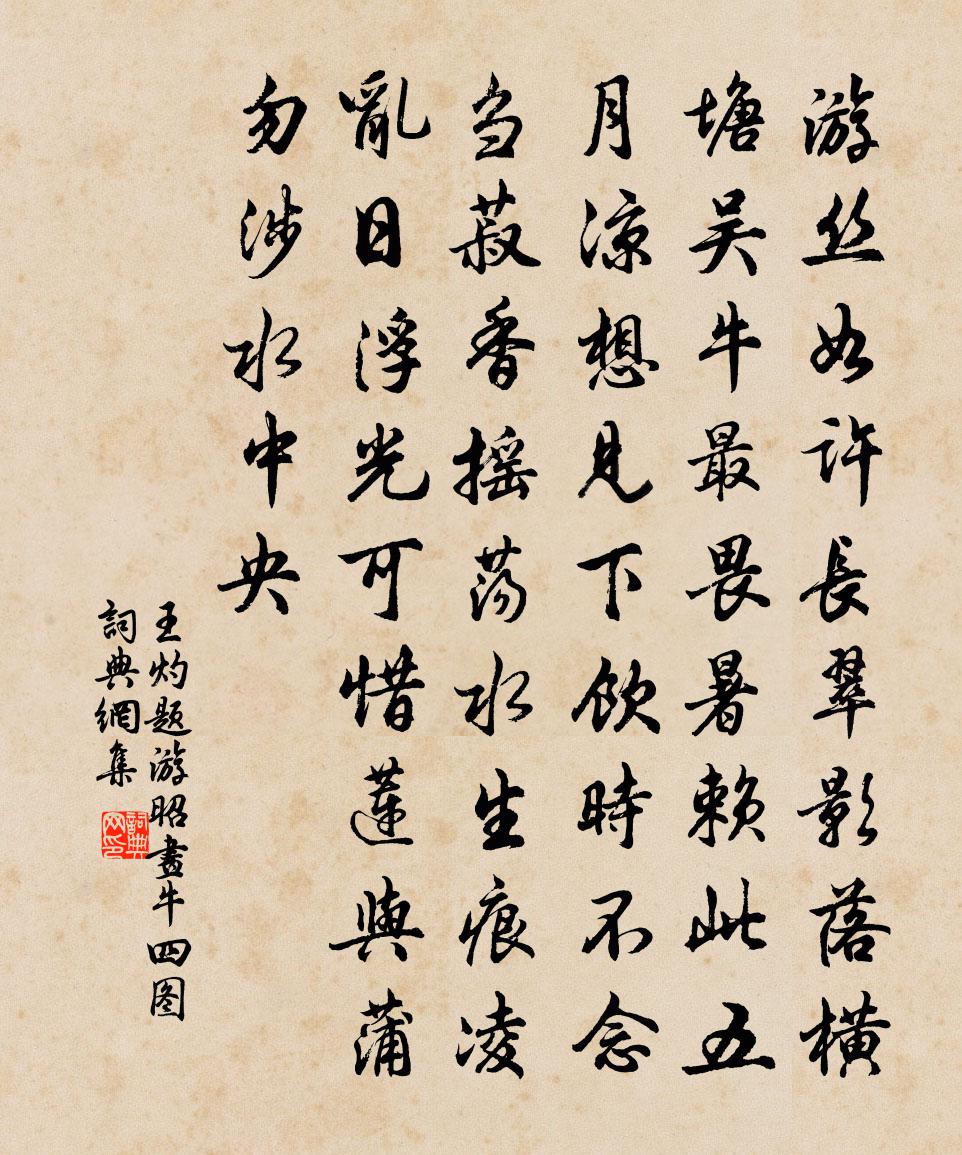 游丝如许長翠影落横
塘吴牛最畏暑赖此五
月凉想見下飲時不念
刍菽香摇荡水生痕凌
亂日浮光可惜蓮與蒲
勿涉水中央
王灼题游昭畫牛四图
詞典網集
詞典网印